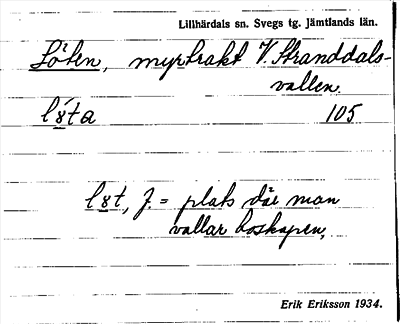 Lillhärdals sn. Svegs tg. Jämtlands län.
Löten, myrtrakt V. Stranddals-
vallen.
105
f. = plats där man
vallar boskapen,
Erik Eriksson 1934.